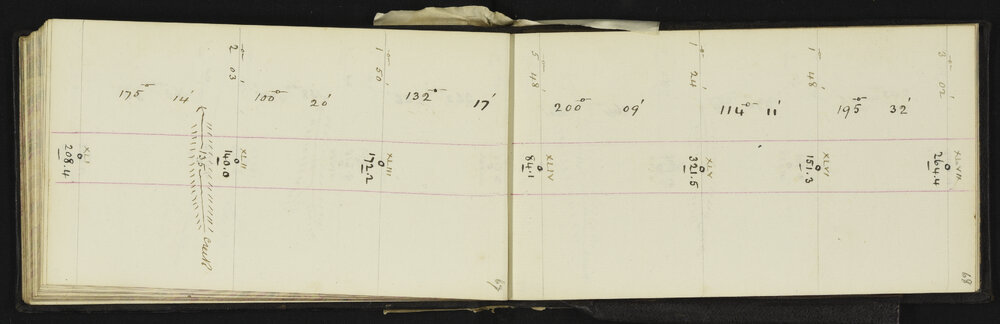 2 03'
1 50'
175° 14'
100° 20'
132° 17'
XLI
208.4
13.5
Creek
XLII
140.0
XLIII
172.2
67
5 48'
1 24'
1 48'
3 02'
200° 09'
114° 11'
195° 32'
XLIV
84.1
XLV
321.5
XLVI
151.3
XLVII
264.4
68